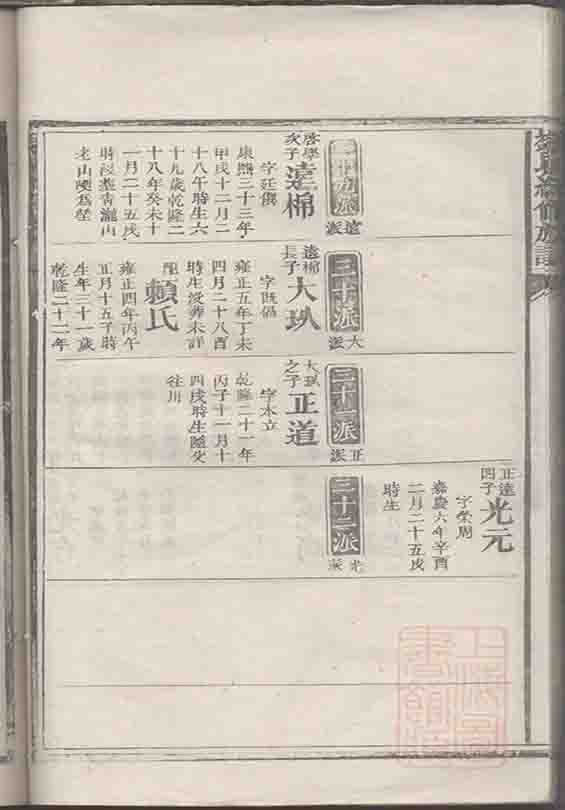 正遠
四子
光元
字榮周
嘉慶六年辛酉
二月二十五戌
時生
二十九派
遠派
啓學
次子
遠棉
字廷儇
康熙三十三年
甲戌十二月二
十八午時生六
十九歲乾隆二
十八年癸未十
一月二十五戌
時歿塟青瀧山
老山陵為塋
三十派
大派
遠棉
長子
大
字既倡
雍正五年丁未
四月二十八酉
時生歿葬未詳
配
賴氏
雍正四年丙午
正月十五子時
生年三十一歲
乾隆二十二年
三十一派
正派
大
之子
正道
字本立
乾隆二十一年
丙子十一月十
四戌時生隨父
往川
三十二派
光派